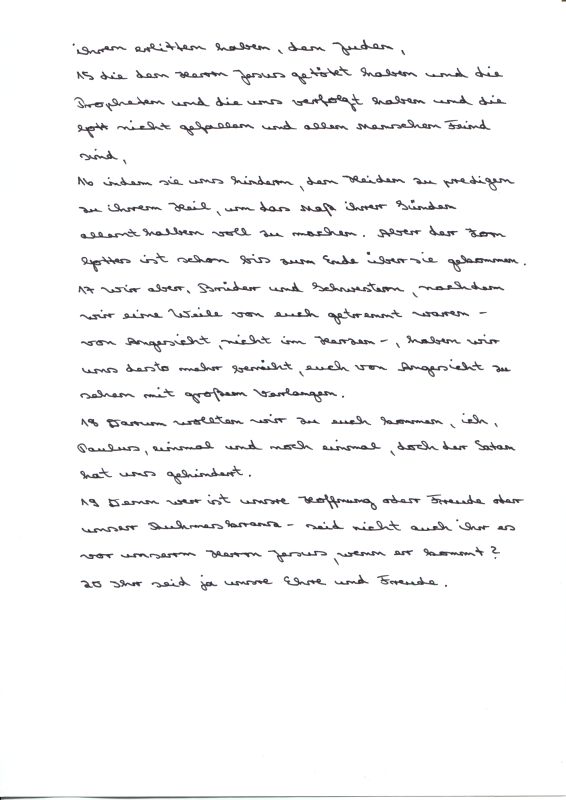 ihnen erlitten haben, den Juden,
15 die den Herrn Jesus getötet haben und die
Propheten und die uns verfolgt haben und die
Gott nicht gefallen und allen Menschen Feind
sind,
16 indem sie uns hindern, den Heiden zu predigen
zu ihrem Heil, um das Maß ihrer Sünden
allenthalben voll zu machen. Aber der Zorn
Gottes ist schon bis zum Ende über sie gekommen.
17 Wir aber, Brüder und Schwestern, nachdem
wir eine Weile von euch getrennt waren -
von Angesicht, nicht im Herzen -, haben wir
uns desto mehr bemüht, euch von Angesicht zu
sehen mit großem Verlangen.
18 Darum wollten wir zu euch kommen, ich,
Paulus, einmal und noch einmal, doch der Satan
hat uns gehindert.
19 Denn wer ist unsre Hoffnung oder Freude oder
unser Ruhmeskranz - seid nicht auch ihr es
vor unserm Herrn Jesus, wenn er kommt?
20 Ihr seid ja unsre Ehre und Freude.